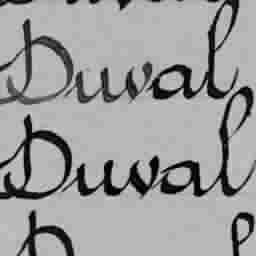 Duval
Duval